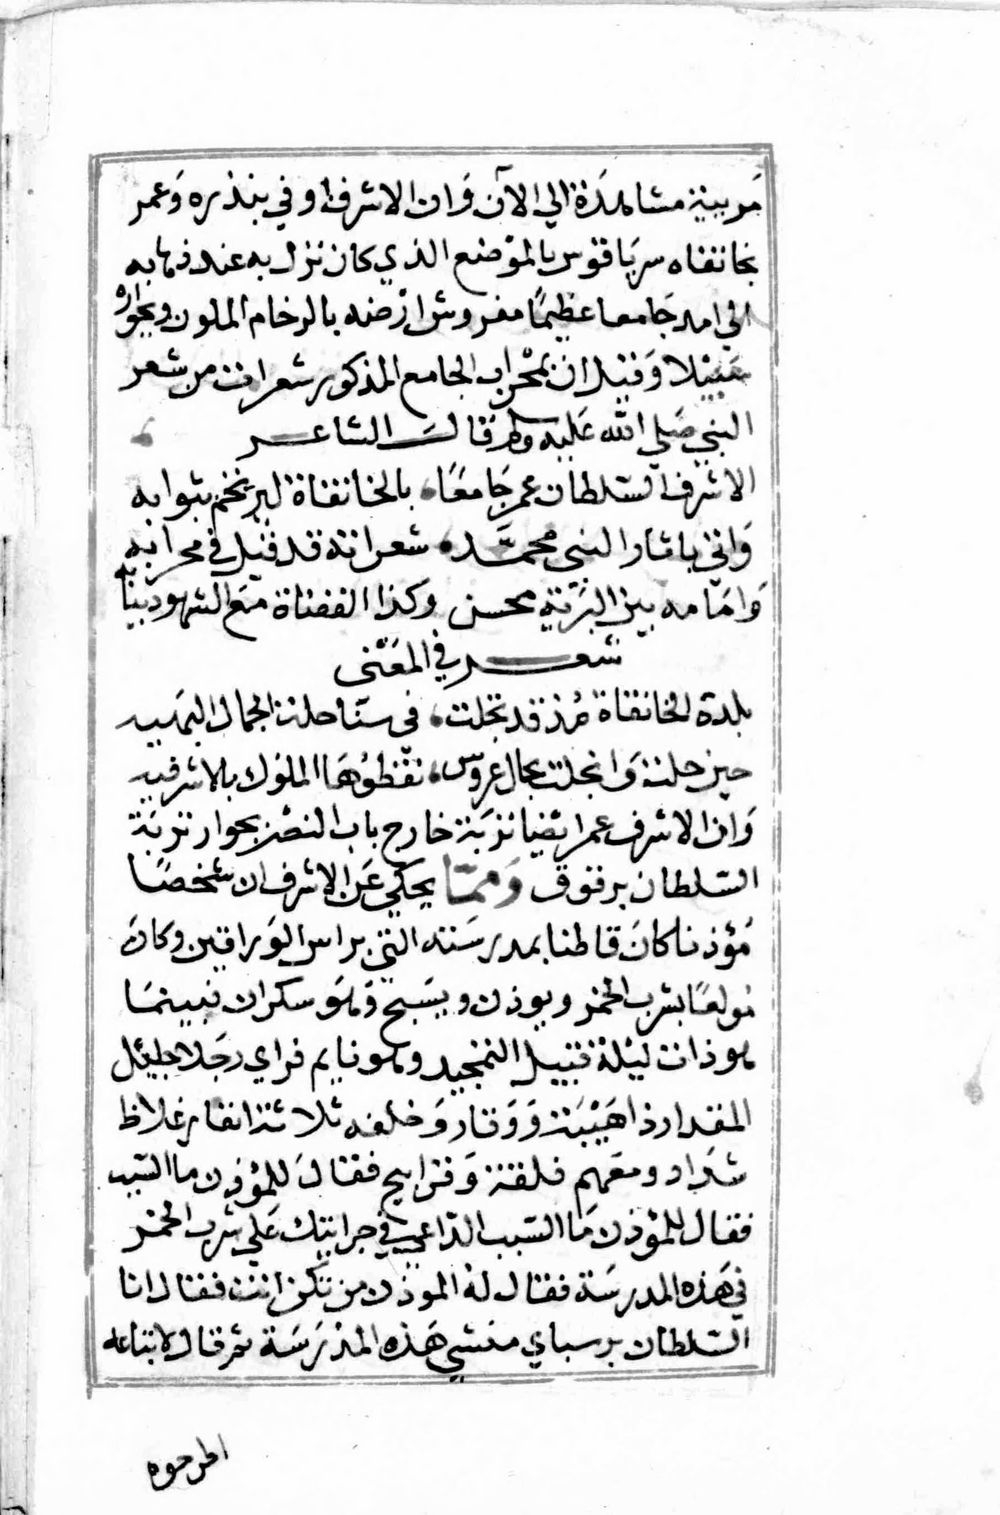 مريية مشاهدة الي الآن وان الاشرف اوفي بنذره وعمر
بخانقاه سرياقوس بالموضع الذي كان نزل به عند ذهابه
الي امد جامعا عظيما مفروش ارضه بالرخام الملون وبجواره
سبيلا وقيل ان بمحراب الجامع المذكور شعرات من شعر
النبي صلي الله عليه وسلم قال الشاعر
الاشرف السلطان عمر جامعا بالخانقاة ثوابه
واتي باثار النبي محمد شعراته قد قيل في محرابه
وامامه بين البرية محسن وكذا القضاة مع الشهود ببابه
شعر في المعني
بلدة الخانقاة مذ قد تجلت في سنا حلت الجمال البهيه
حين حلت وانجلت بجمال عروس نقطوها الملوك بالاشرفيه
وان الاشرف عمر ايضا تربة خارج باب النصر بجوار تربة
السلطان برقوق ومما يحكي عن الاشرف ان شخصا
مؤذنا كان قاطنا بمدرسته التي براس الوراقين وكان
مولعا بشرب الخمر ويوذن ويسبح وهو سكران فبينما
هو ذات ليلة قبيل التمجيد وهو نايم فراي رجلا جليل
المقدار ذا هيبة ووقار وخلفه ثلاثة انفار غلاظ
شداد ومعهم فلقة وقرابيج فقال للمؤذن ما السبب
فقال للمؤذن ما السبب الداعي في جرايتك علي شرب الخمر
في هذه المدرسة فقال له الموذن من تكن انت فقال انا
السلطان برسباي منشي هذه المدرسة ثم قال لاتباعه
اطرحوه